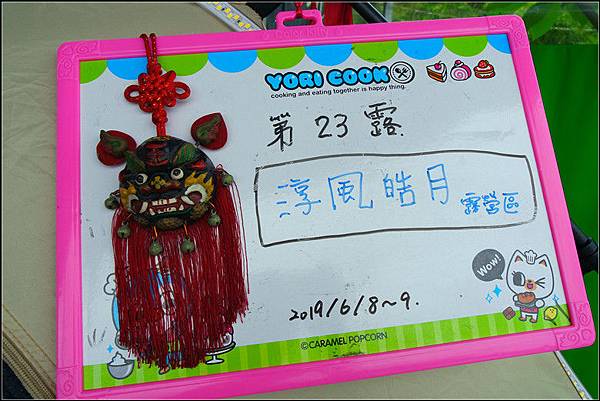 YORI COOK
cooking and eating together is happy thing.
第23露
淳風皓月 露營區
Wow!
2019/6/8~9.
©CARAMEL POPCORN